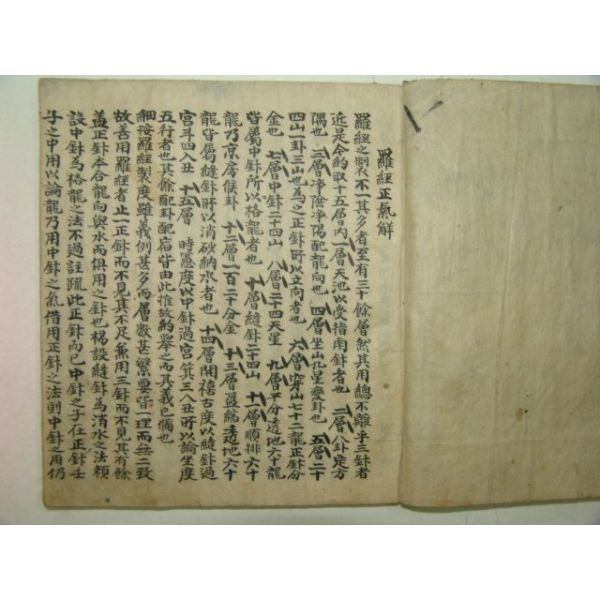 羅經正氣解
羅經之製不一其多者至有三十餘層然其用總不離乎三針者
近是今約取十五層內一層天池以受指南針者也 二層八卦定方
隅也 三層淨陰淨陽配龍向也 四層坐山九星變卦也 五層二十
四山一卦三山也為之正針所以立向者也 六層穿山七十二龍正針分
金也 七層中針二十四山 八層二十四天星 九層平分透地六十龍
皆屬中針所以格龍者也 十層縫針二十四山 十一層順排六十
龍乃京房候卦 十二層一百二十分金 十三層盈縮透地六十
龍皆屬縫針所以消砂納水者也 十四層開禧古度以縫針過
宮斗四入丑 十五層 時憲度以中針過宮箕三入丑所以論坐度
五行者也其餘配卦配宿皆由此推故約舉之而其義已備也
細按羅經製度雖義例甚多而層數甚繁要皆一理而無二致
故善用羅經者止一正針而不見其不足無用三針而不見其有餘
盖正針本合龍向與水而俱用之針也楊設縫針為消水之法賴
設中針為格龍之法不過註疏此正針而已中針之子在正針壬
子之中用以論龍乃用中針之氣借用正針之法則中針之用仍